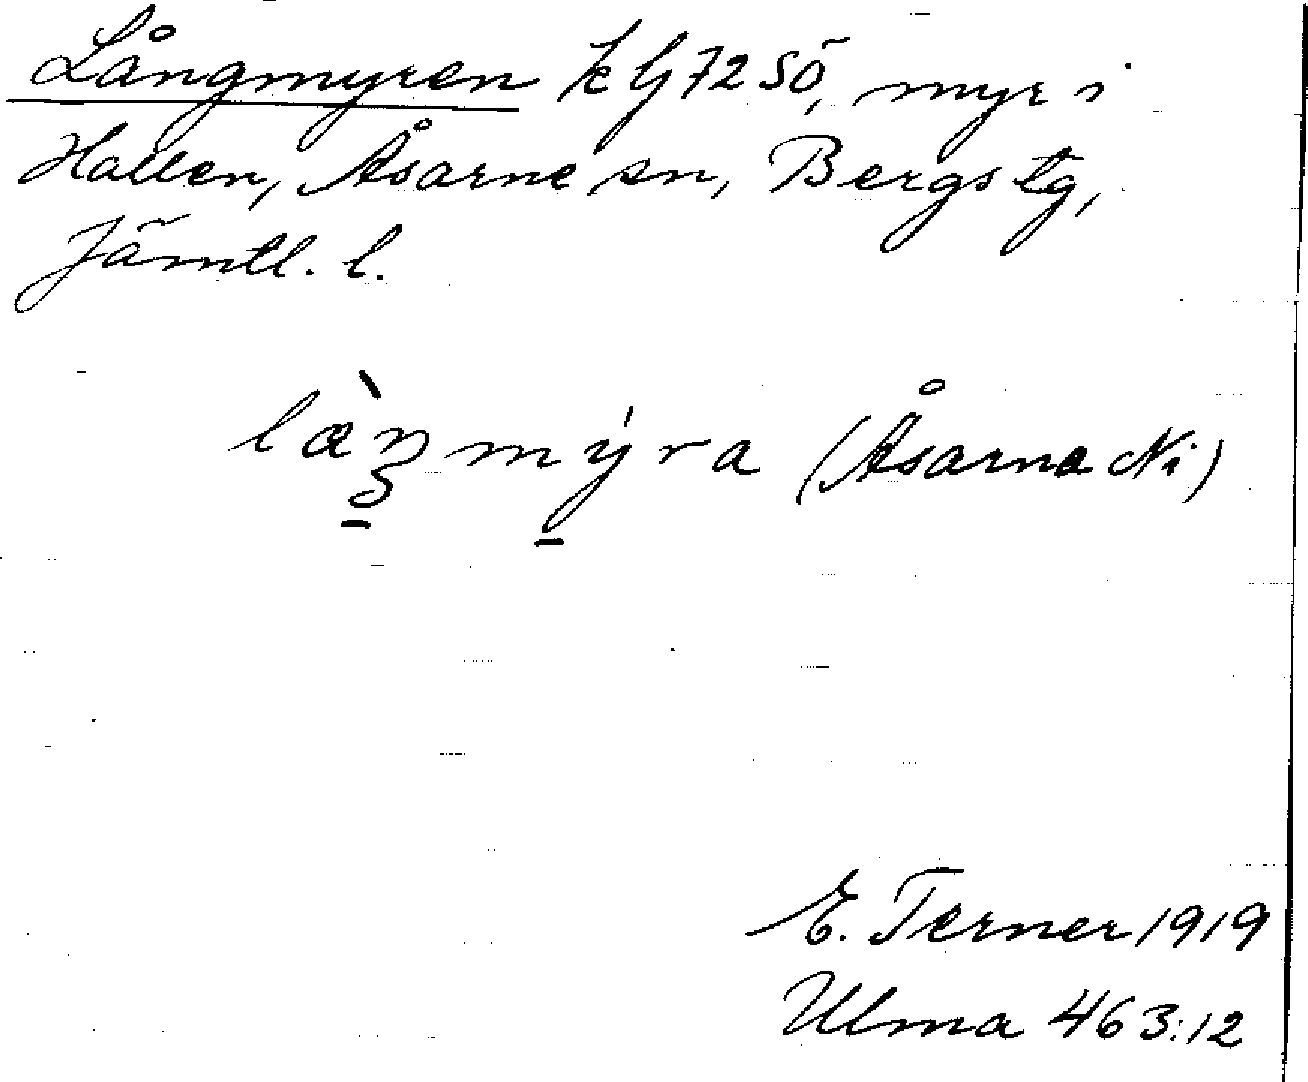 Långmyren kG 72 SÖ, myr i
Hallen, Åsarne sn, Bergs tg,
Jämtl. l.
(Åsarna Ni)
E. Terner 1919
Ulma 463:12